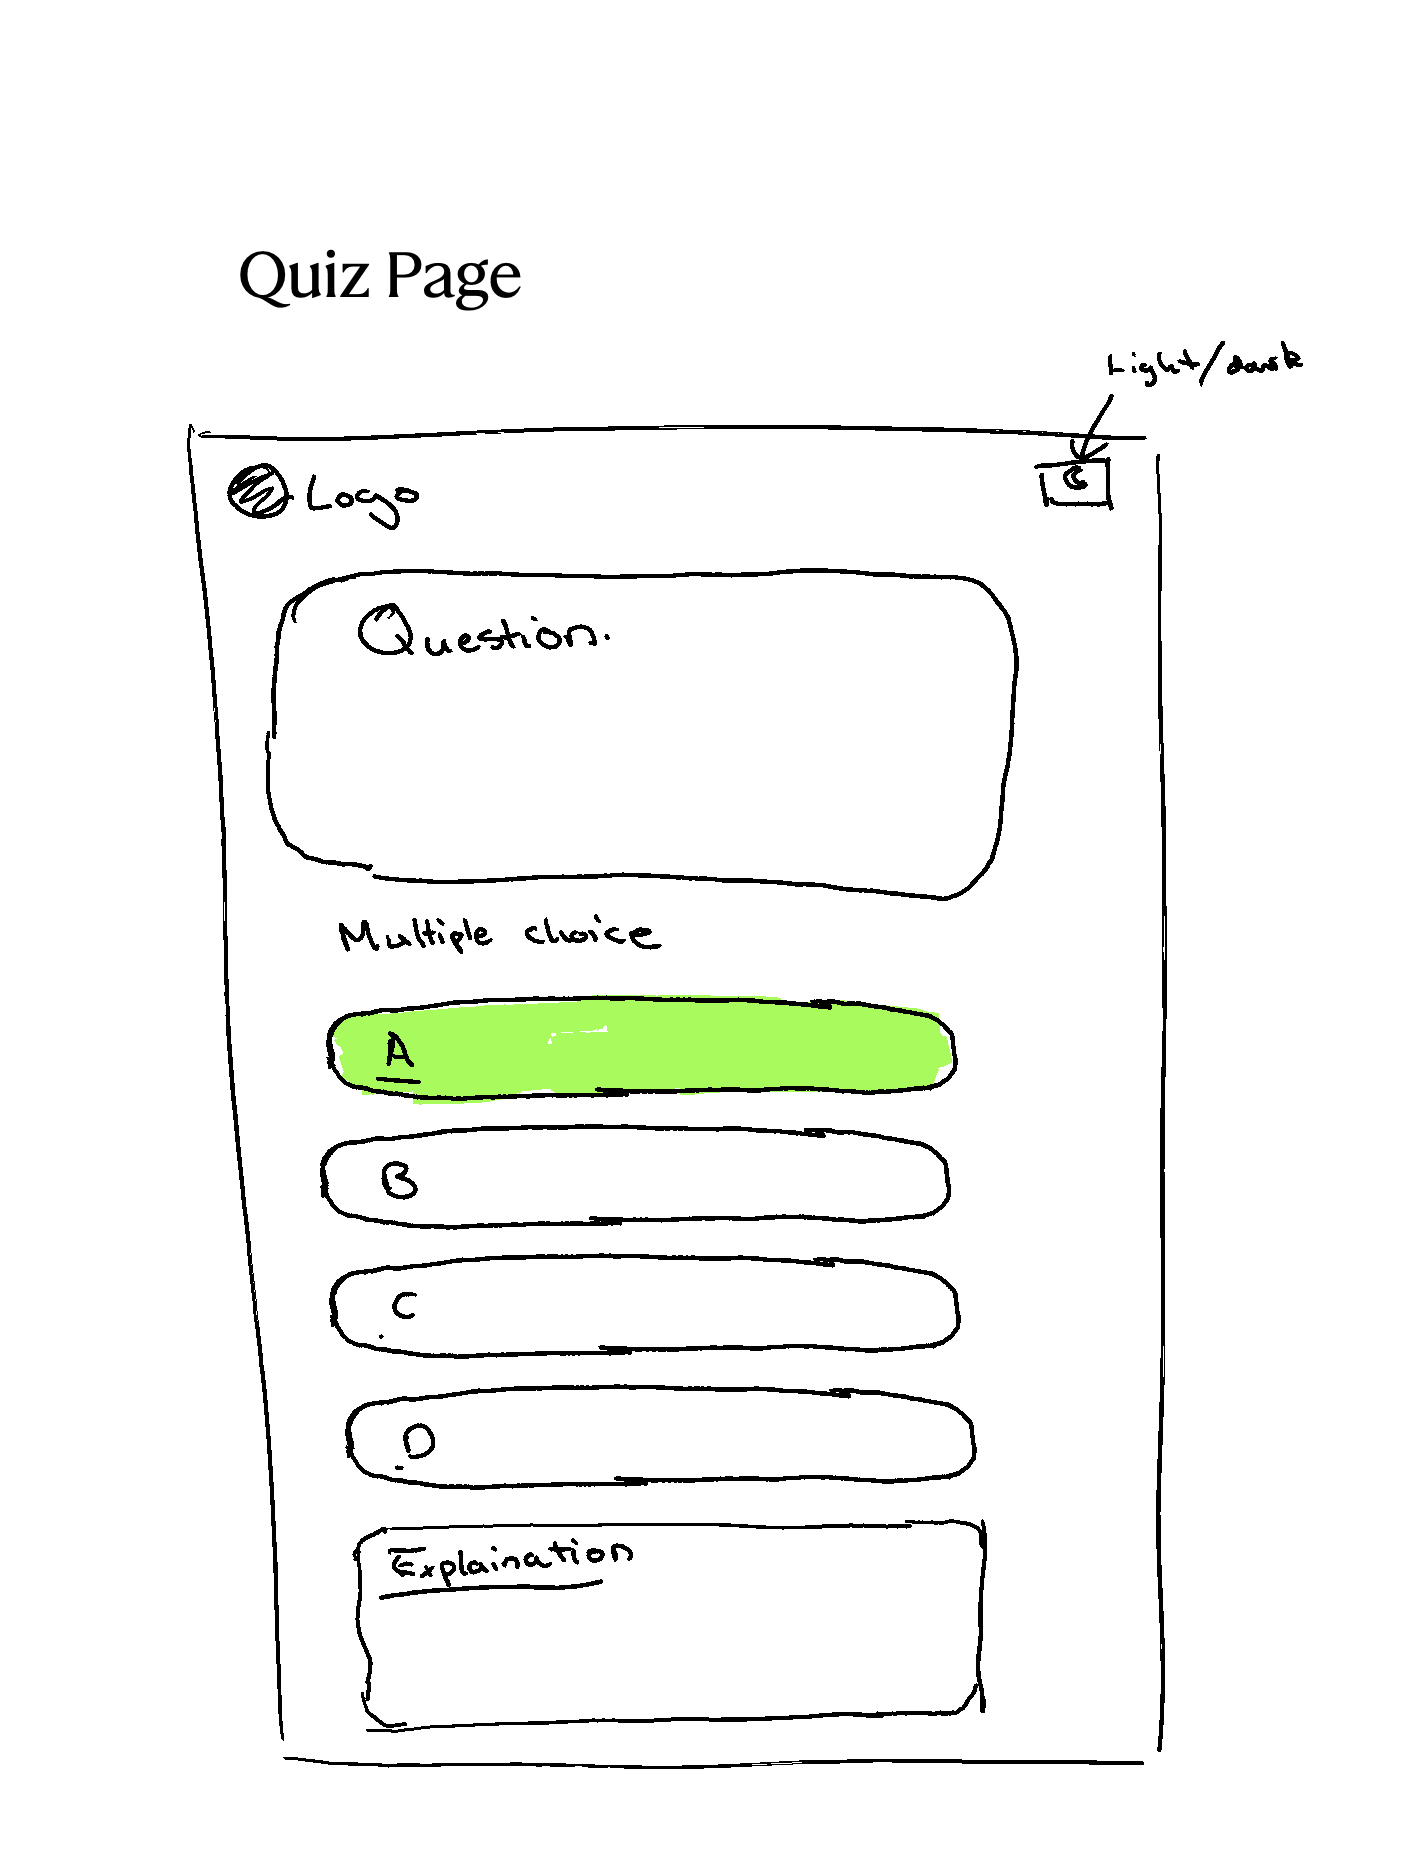 Quiz Page
Light/dark
Logo
Question.
Multiple choice
A
B
C
D
Explaination